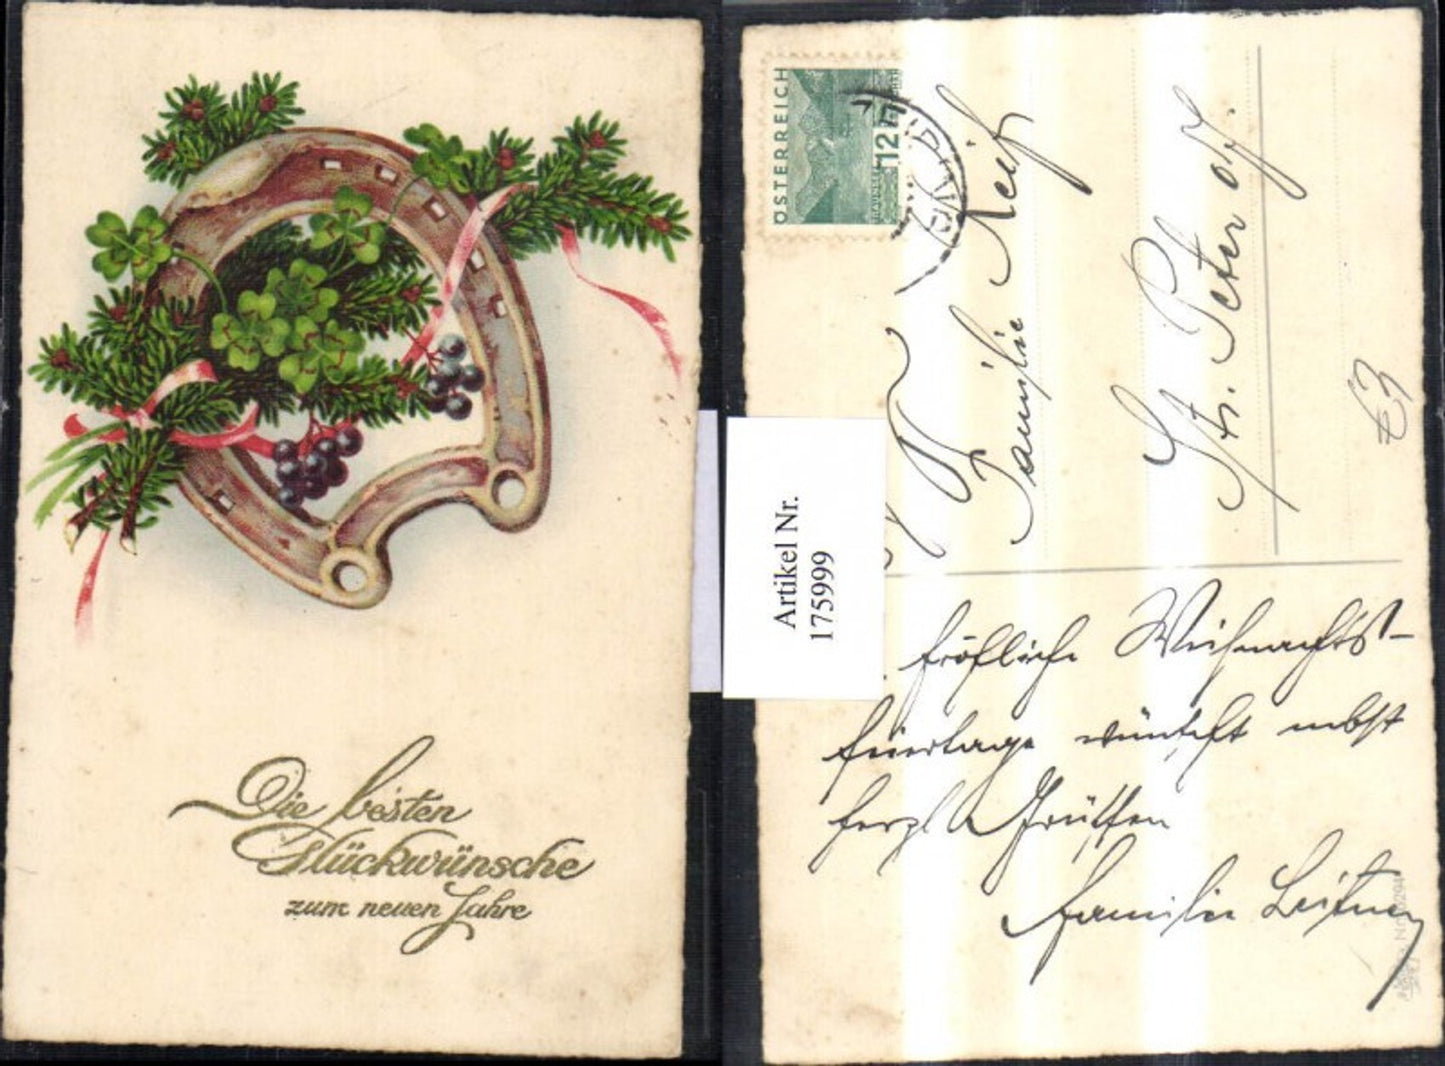 Die besten
Glückwünsche
zum neuen Jahre
ÖSTERREICH
12
Artikel Nr.
175999
Familie Reif
St. Peter
fröhliche Weihnachts-
feiertage wünscht nebst
herzl Grüßen
Familie Leitner